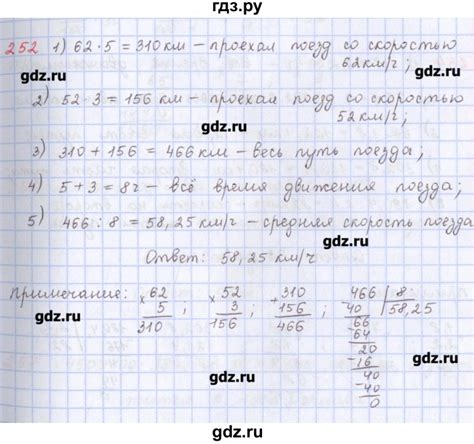 гдз.ру
252 1) 62 · 5 = 310 км – проехал поезд со скоростью
62 км/ч ;
gdz.ru gdz.ru
2) 52 · 3 = 156 км – проехал поезд со скоростью
52 км/ч ;
gdz.ru
3) 310 + 156 = 466 км – весь путь поезда ;
4) 5 + 3 = 8 ч – всё время движения поезда ;
gdz.ru gdz.ru
5) 466 : 8 = 58,25 км/ч – средняя скорость поезда
Ответ: 58,25 км/ч
gdz.ru
Примечание: × 62 ; × 52 ; + 310 ; 466 | 8
5 3 156 - 40 58,25
310 156 466 66
gdz.ru gdz.ru
- 64
20
- 16
40
gdz.ru
- 40
0